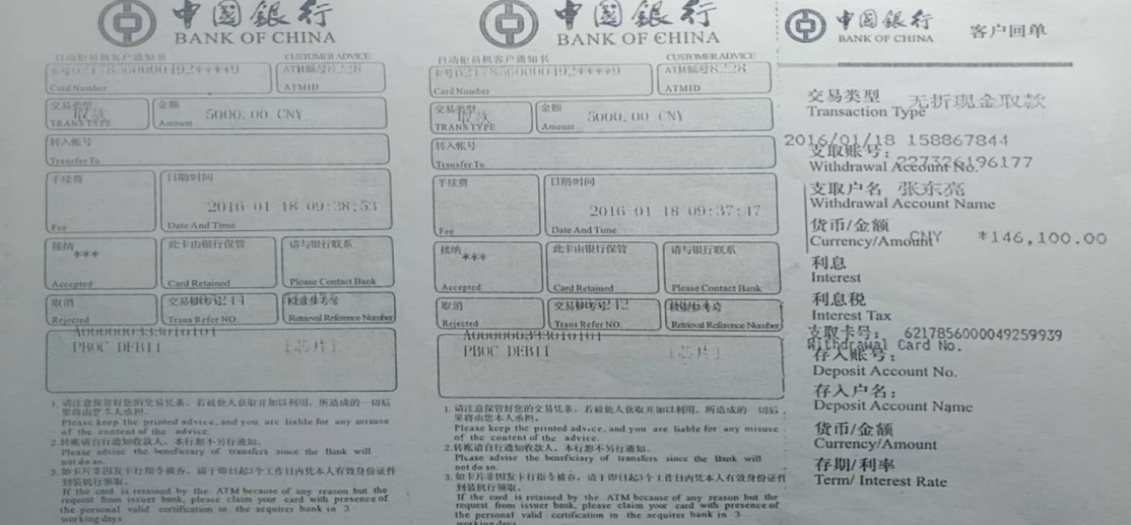 中國銀行
BANK OF CHINA
自动柜员机客户通知书
CUSTOMER ADVICE
卡号
Card Number
ATM编号8228
ATMID
交易类型
取款
TRANS TYPE
金额
5000.00 CNY
Amount
转入帐号
Transfer To
手续费
Fee
日期时间
2016 01 18 09:38:53
Date And Time
接纳
***
Accepted
此卡由银行保管
Card Retained
请与银行联系
Please Contact Bank
取消
Rejected
交易
Trans Refer NO.
Retrieval Reference Number
PBOC DEBIT
[芯片]
1.请注意保管好您的交易凭条，若被他人获取并加以利用，所造成的一切后
果将由您本人承担。
Please keep the printed advice, and you are liable for any misuse
of the content of the advice.
2.转账请自行通知收款人，本行恕不另行通知。
Please advise the beneficiary of transfers since the Bank will
not do so.
3.如卡片非因发卡行指令被吞，请于即日起3个工作日内凭本人有效身份证件
到装机行领取。
If the card is retained by the ATM because of any reason but the
request from issuer bank, please claim your card with presence of
the personal valid certification in the acquirer bank in 3
working days.
中國銀行
BANK OF CHINA
自动柜员机客户通知书
CUSTOMER ADVICE
卡号
Card Number
ATM编号8228
ATMID
交易类型
取款
TRANS TYPE
金额
5000.00 CNY
Amount
转入帐号
Transfer To
手续费
Fee
日期时间
2016 01 18 09:37:47
Date And Time
接纳
***
Accepted
此卡由银行保管
Card Retained
请与银行联系
Please Contact Bank
取消
Rejected
交易
Trans Refer NO.
Retrieval Reference Number
PBOC DEBIT
[芯片]
1.请注意保管好您的交易凭条，若被他人获取并加以利用，所造成的一切后
果将由您本人承担。
Please keep the printed advice, and you are liable for any misuse
of the content of the advice.
2.转账请自行通知收款人，本行恕不另行通知。
Please advise the beneficiary of transfers since the Bank will
not do so.
3.如卡片非因发卡行指令被吞，请于即日起3个工作日内凭本人有效身份证件
到装机行领取。
If the card is retained by the ATM because of any reason but the
request from issuer bank, please claim your card with presence of
the personal valid certification in the acquirer bank in 3
working days.
中國銀行
BANK OF CHINA
客户回单
交易类型 无折现金取款
Transaction Type
2016/01/18 158867844
支取账号：
Withdrawal Account No. 227326196177
支取户名 张东亮
Withdrawal Account Name
货币/金额
Currency/Amount CNY *146,100.00
利息
Interest
利息税
Interest Tax
支取卡号： 6217856000049259939
Withdrawal Card No.
存入账号：
Deposit Account No.
存入户名：
Deposit Account Name
货币/金额
Currency/Amount
存期/利率
Term/ Interest Rate